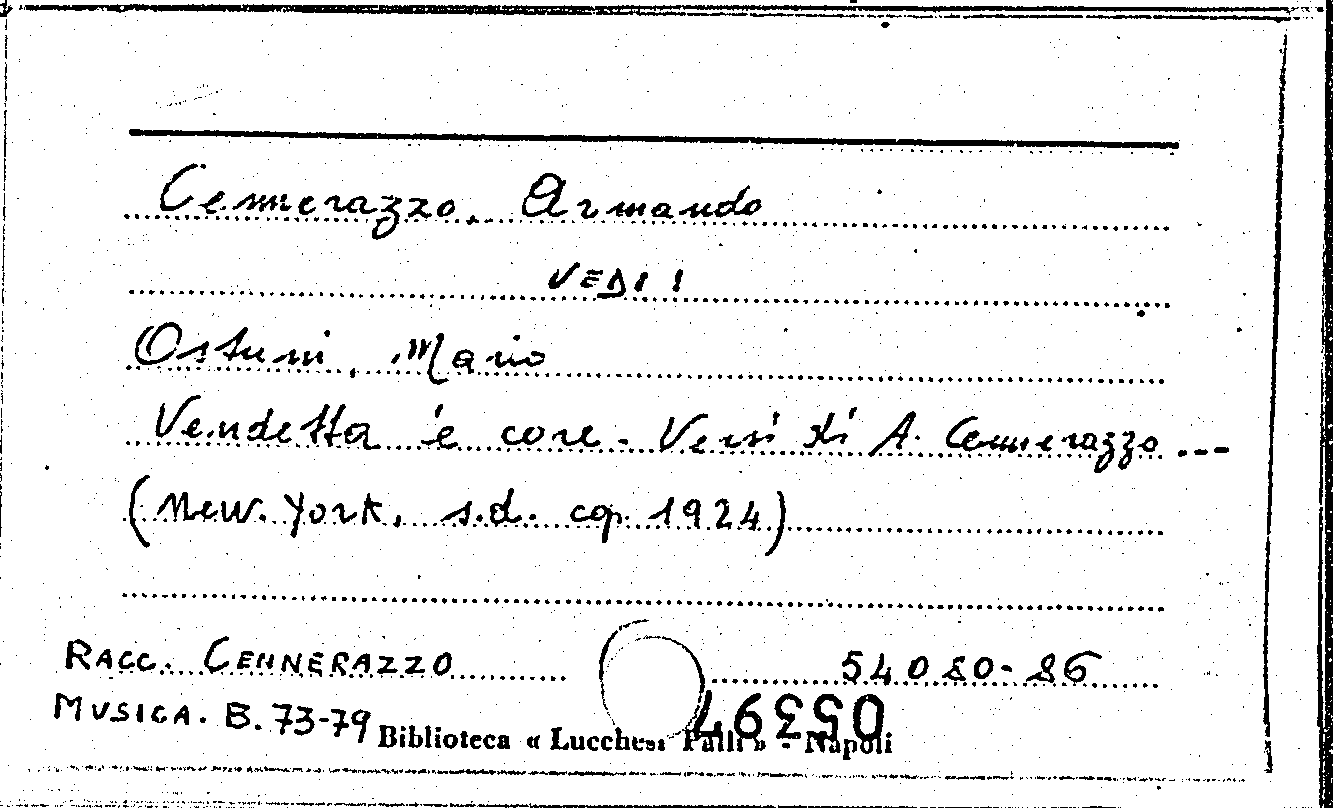 Cennerazzo, Armando
VEDI!
Ostuni, Mario
Vendetta 'e core. Versi di A. Cennerazzo...
(New York, s.d. cop. 1924)
RACC. CENNERAZZO 54080-86
MUSICA. B. 73-79
Biblioteca « Lucchesi Palli » - Napoli
05397